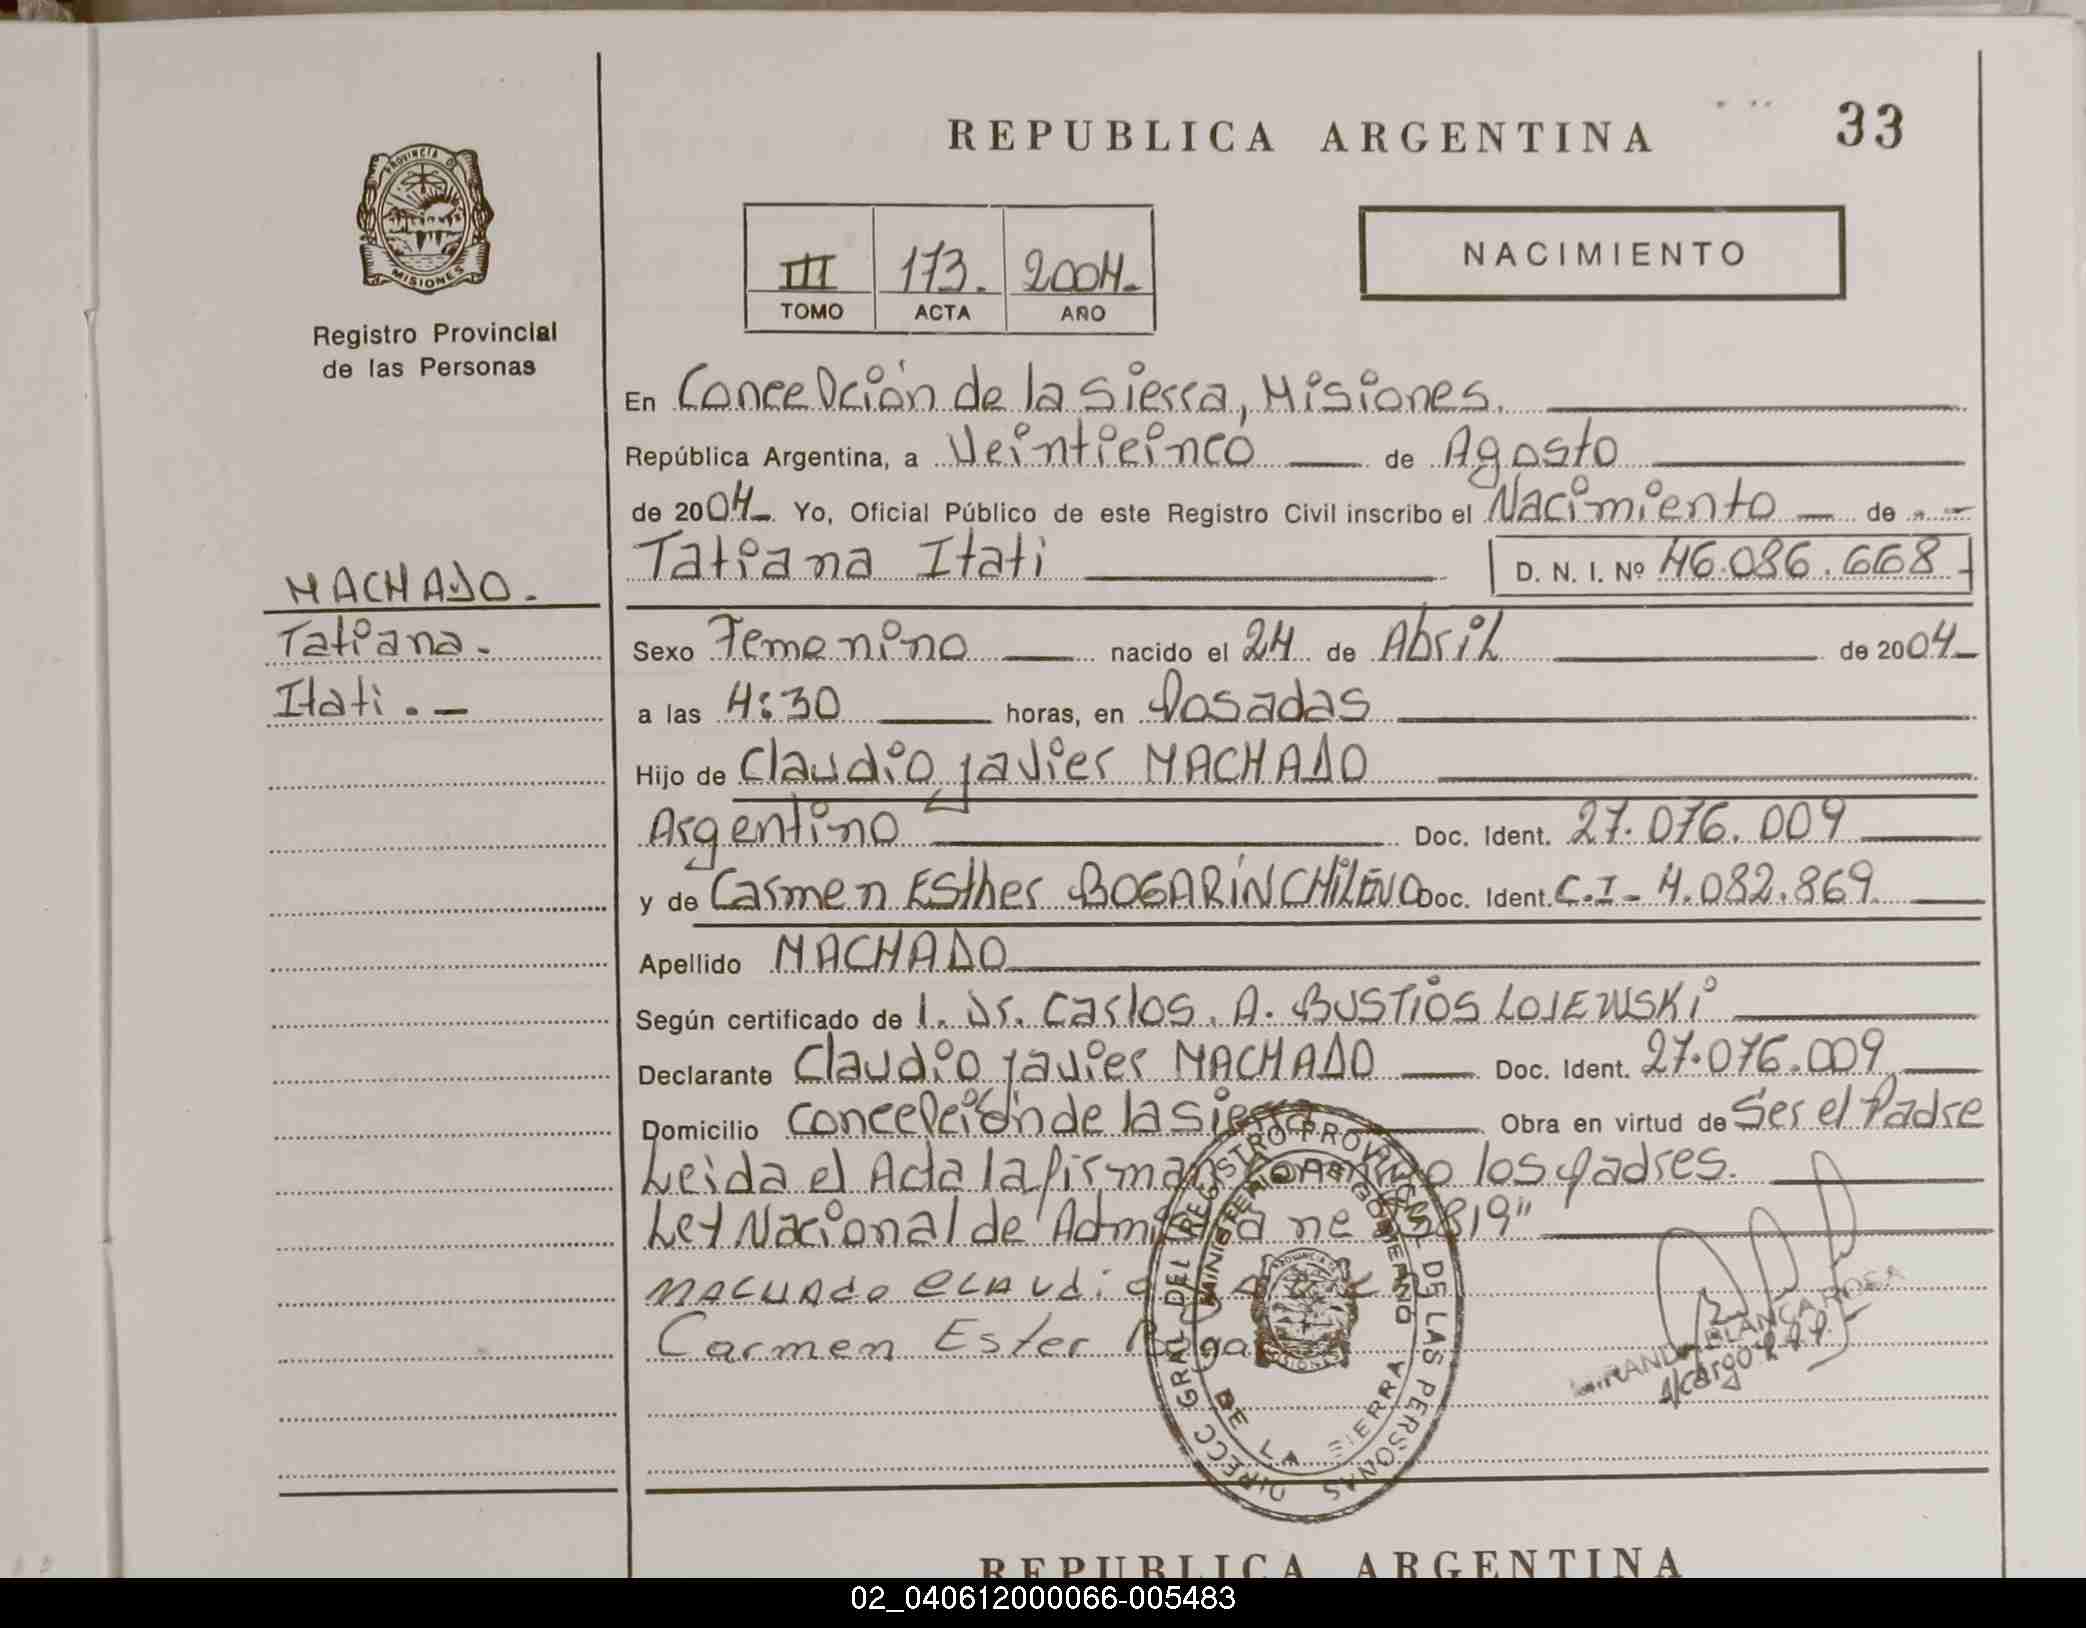 REPUBLICA ARGENTINA
33
PROVINCIA DE
MISIONES
Registro Provincial
de las Personas
III 173. 2004.
TOMO ACTA AÑO
NACIMIENTO
En Concepción de la Sierra, Misiones.
República Argentina, a Veinticinco de Agosto
de 2004 Yo, Oficial Público de este Registro Civil inscribo el Nacimiento de
Tatiana Itati
D. N. I. Nº 46.086.668
MACHADO.
Tatiana.
Itati.
Sexo Femenino nacido el 24 de Abril de 2004
a las 4:30 horas, en Posadas
Hijo de Claudio Javier MACHADO
Argentino Doc. Ident. 27.076.009
y de Carmen Esther BOGARÍN CHILENO Doc. Ident. C.I - 4.082.869
Apellido MACHADO
Según certificado de 1. Dr. Carlos. A. BUSTIOS LOJEWSKI
Declarante Claudio Javier MACHADO Doc. Ident. 27.076.009
Domicilio Concepción de la Sierra Obra en virtud de Ser el Padre
Leida el Acta la firman Conmigo los padres.
Ley Nacional de
MACHADO CLAUDIO
Carmen Ester
DIRECC GRAL DEL REGISTRO PROVINCIAL DE LAS PERSONAS
MINISTERIO DE GOBIERNO
DE LA SIERRA
MIRANDA BLANCA ROSA
A/cargo R.P.P.
REPUBLICA ARGENTINA
02_040612000066-005483